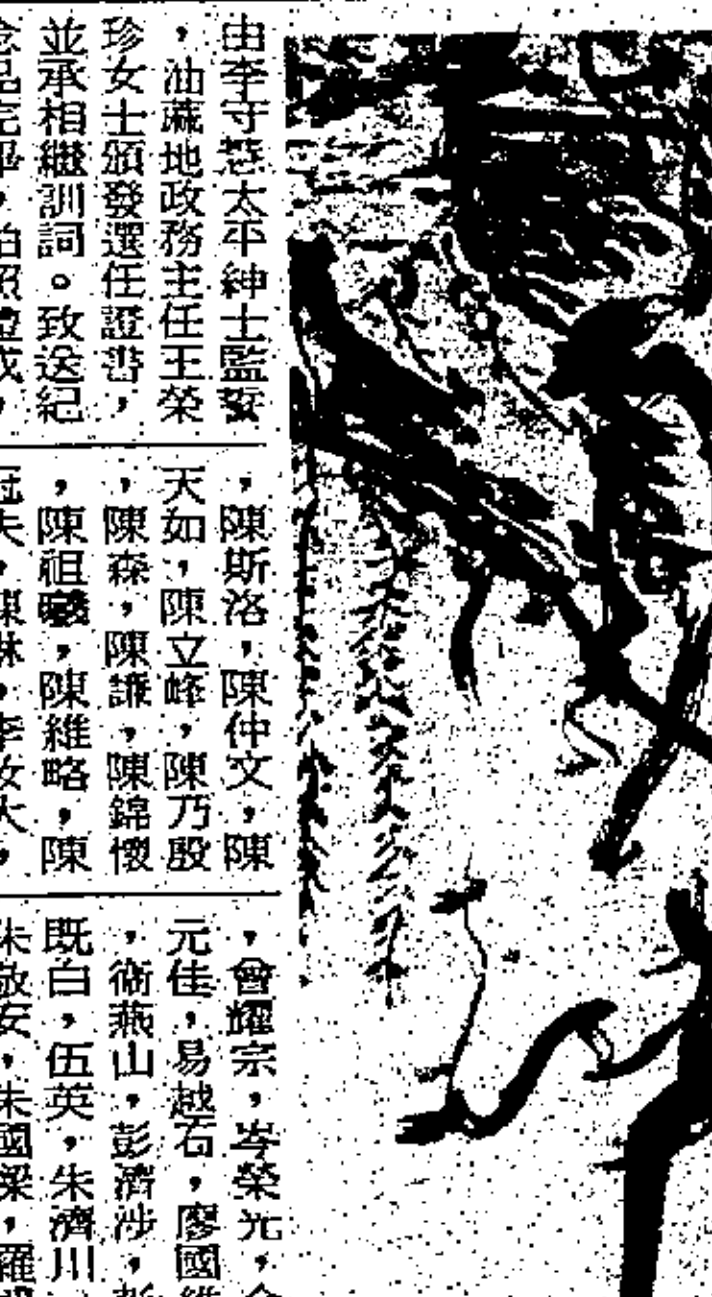 由李守慧太平紳士監誓
，油蔴地政務主任王榮
珍女士頒發選任證書，
並承相繼訓詞。致送紀
念品完畢，拍照禮成，
，陳斯洛，陳仲文，陳
天如，陳立峰，陳乃殷
，陳森，陳謙，陳錦懷
，陳祖曦，陳維略，陳
冠夫，陳琳，李汝大，
，曾耀宗，岑榮光，
元佳，易越石，廖國
，衞燕山，彭濟涉，
既白，伍英，朱濟川
朱敬安，朱國梁，羅